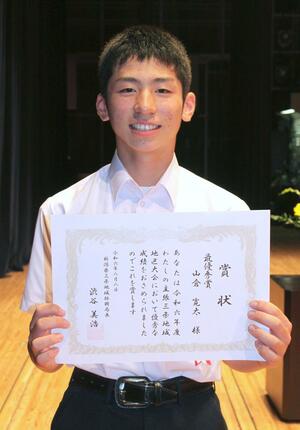 賞状
最優秀賞
山倉 寛太 様
あなたは令和六年度
わたしの主張三条地域
地区大会において優秀な
成績をおさめられました
のでこれを賞します
令和六年八月八日
新潟県三条地域振興局長
渋谷 美浩